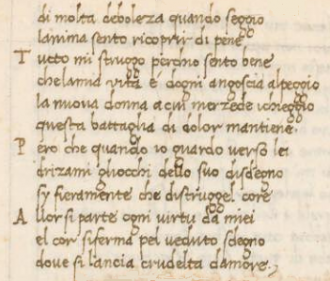 di molta deboleza quando seggio
lanima sento ricoprir di pene
Tucto mi struggo perchio sento bene
che lamia vita é dogni angoscia alpeggio
la nuova donna a cui merzede ichieggio
questa battaglia di dolor mantiene
Pero che quando io guardo verso lei
drizami gliocchi dello suo disdegno
sy fieramente che distruggel core
Allor si parte ogni virtu da miei
el cor siferma pel veduto sdegno
dove si lancia crudelta damore